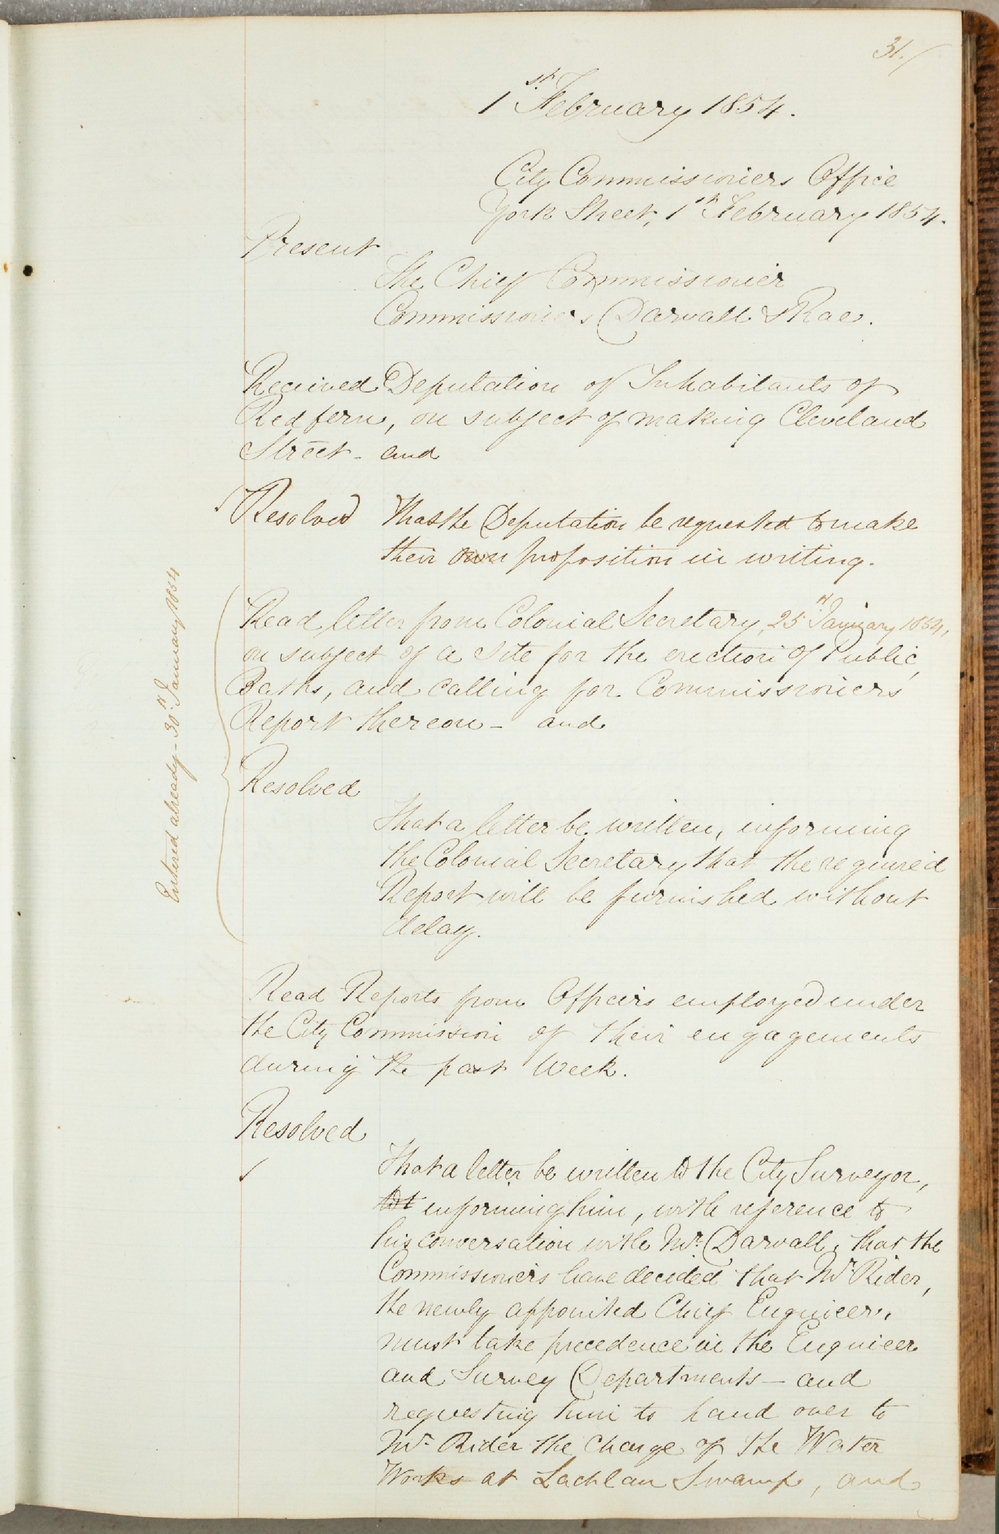 31./
1st February 1854.
City Commissioners Office
York Street, 1st February 1854.
Present
The Chief Commissioner
Commissioners Darvall & Rae.
Received Deputation of Inhabitants of
Redfern, on subject of making Cleveland
Street - and
Resolved That the Deputation be requested to make
their own proposition in writing.
Read letter from Colonial Secretary, 25th January 1854,
on subject of a Site for the erection of Public
Baths, and calling for Commissioners'
Report thereon - and
Entered already - 30th January 1854
Resolved
That a letter be written, informing
the Colonial Secretary that the required
Report will be furnished without
delay.
Read Reports from Officers employed under
the City Commission of their engagements
during the past Week.
Resolved
That a letter be written to the City Surveyor,
informing him, with reference to
his conversation with Mr. Darvall, that the
Commissioners have decided that Mr. Rider,
the newly appointed Chief Engineer,
must take precedence in the Engineer
and Survey Departments - and
requesting him to hand over to
Mr. Rider the Charge of the Water
Works at Lachlan Swamp, and